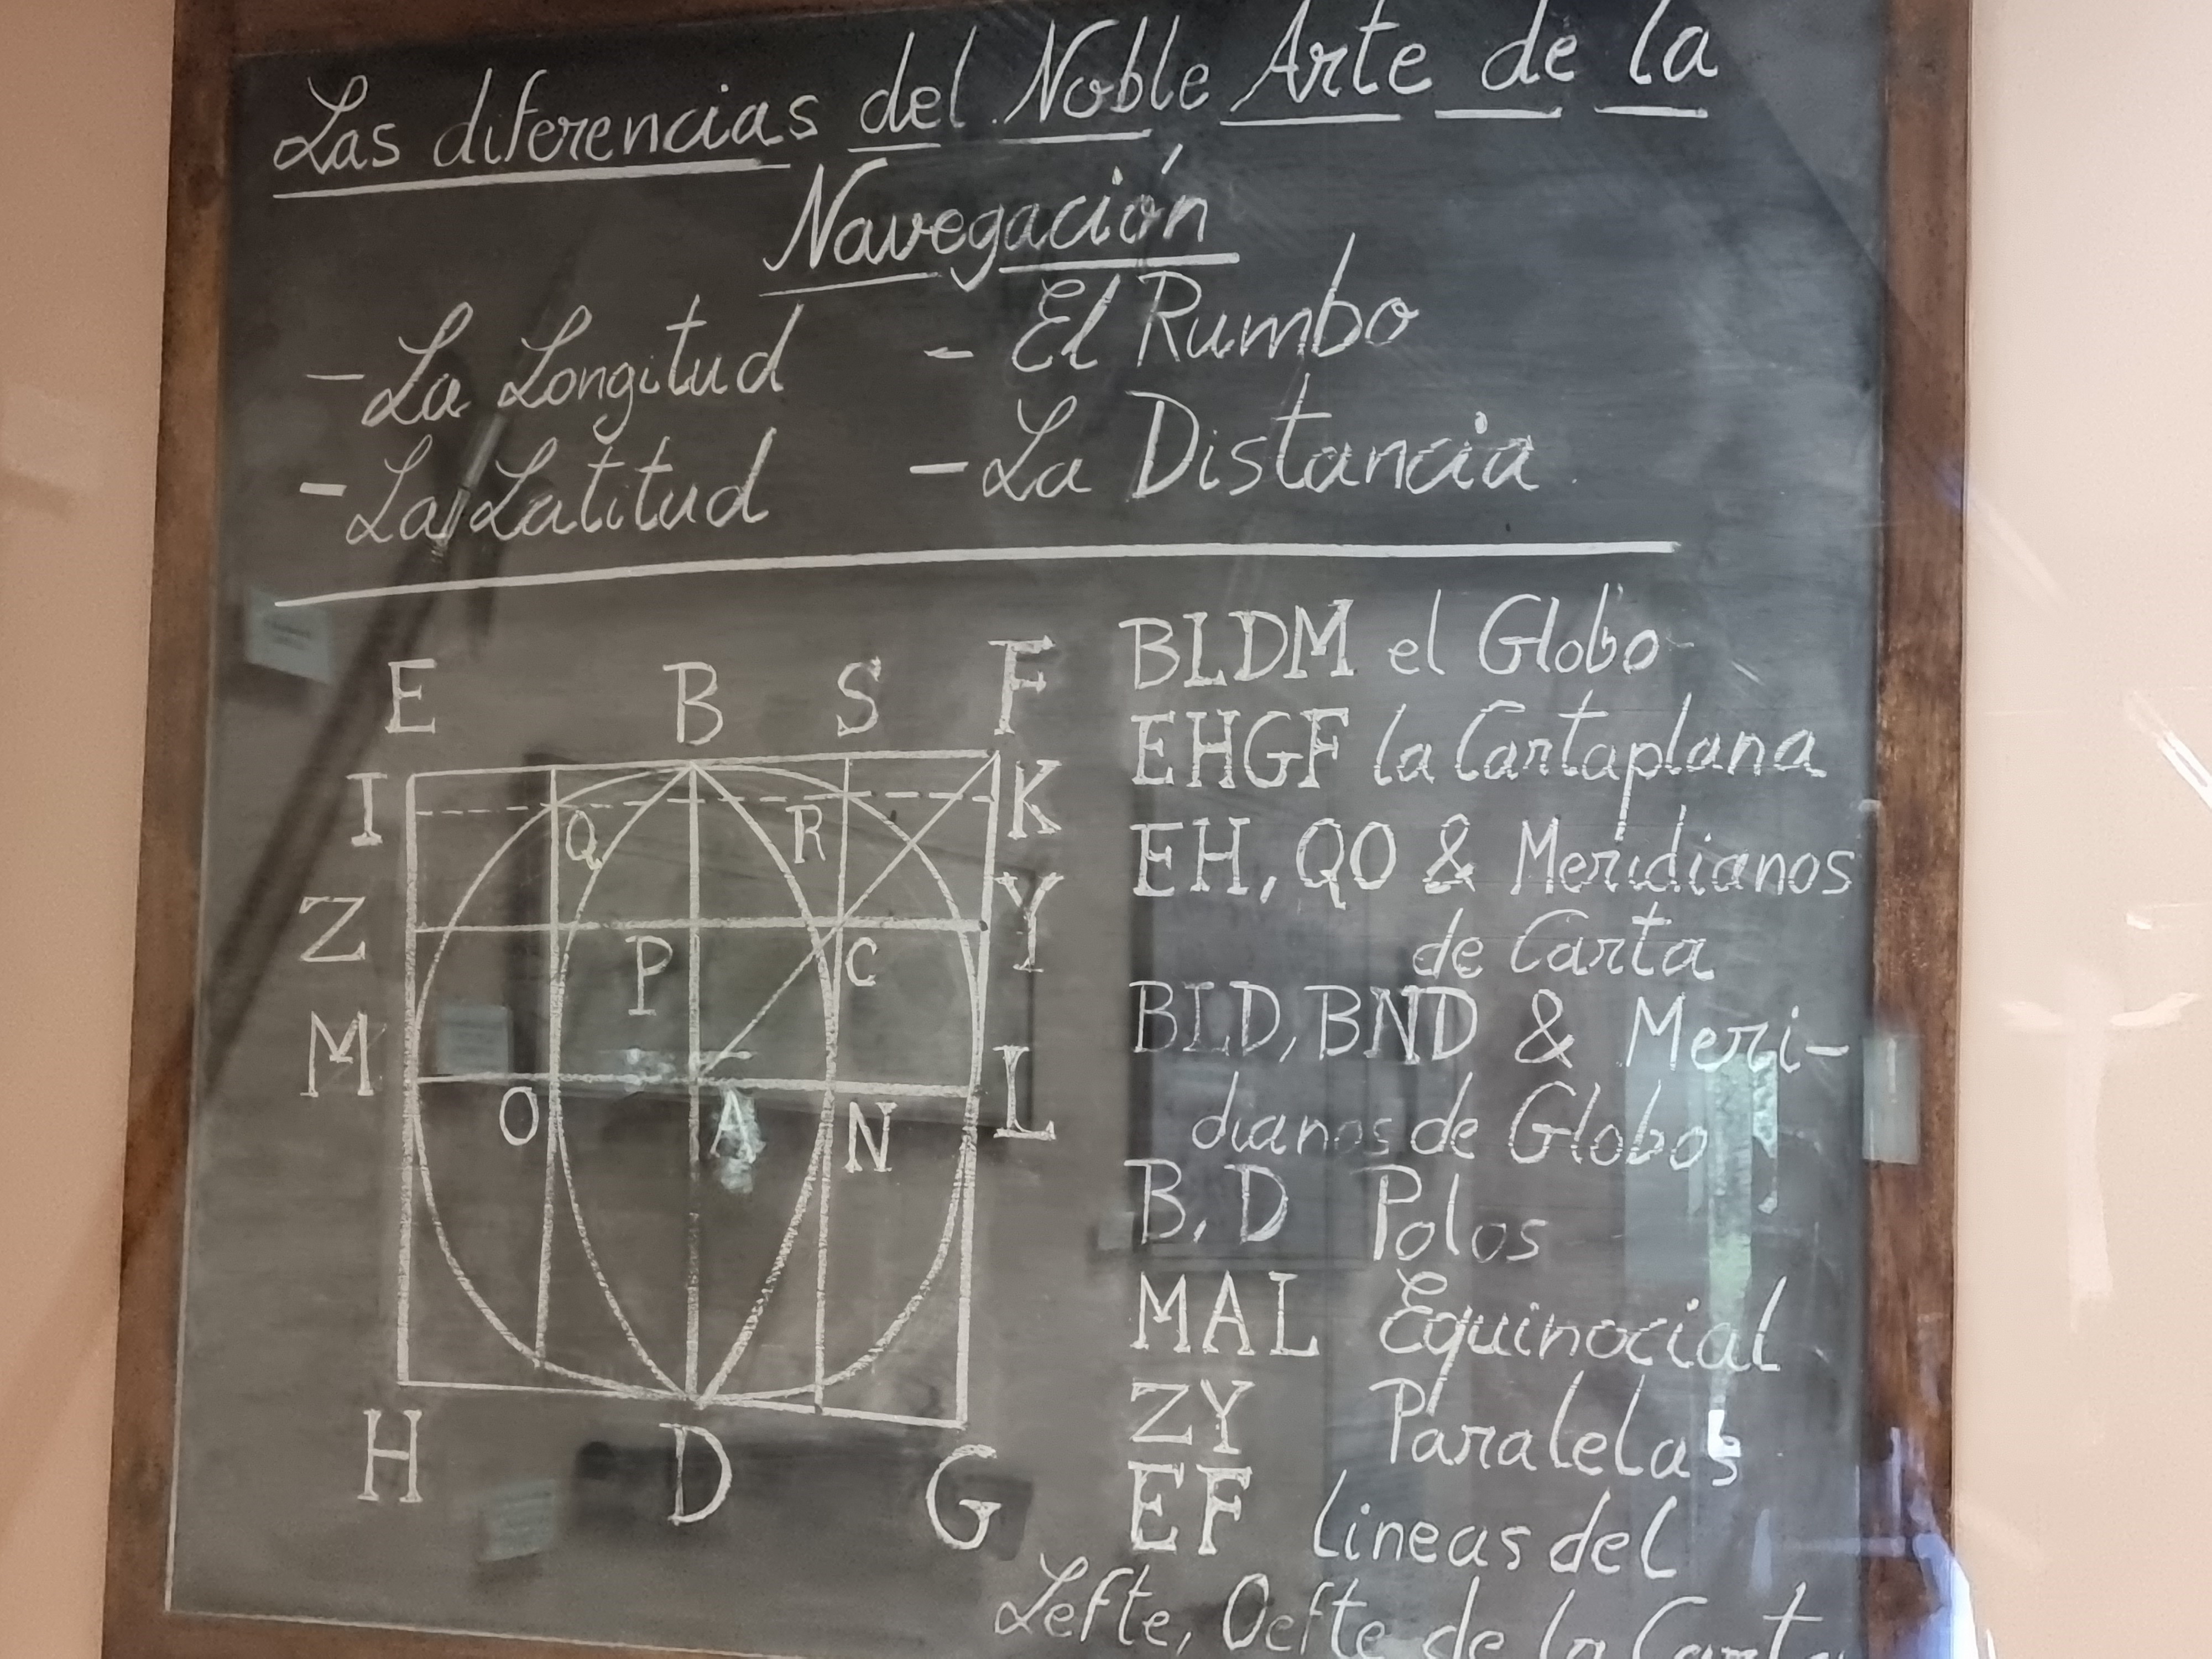 Las diferencias del Noble Arte de la
Navegación
- La Longitud - El Rumbo
- La Latitud - La Distancia
E B S F
I K
Q R
Z Y
P C
M L
O A N
H D G
BLDM el Globo
EHGF la Cartaplana
EH, QO & Meridianos
de Carta
BLD, BND & Meri-
dianos de Globo
B, D Polos
MAL Equinocial
ZY Paralelas
EF lineas del
Lefte, Oefte de la Carta